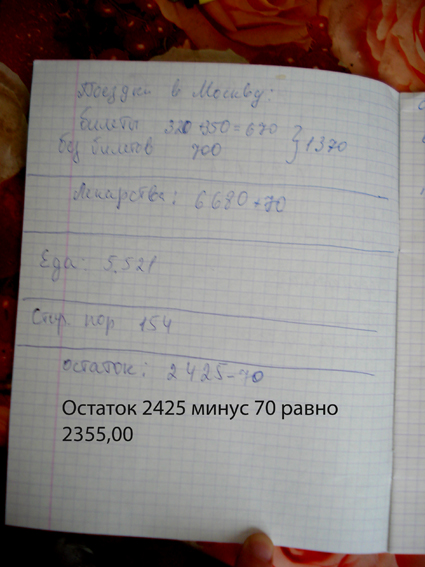 Поездки в Москву:
билеты 320+350=670
без билетов 700 } 1370
Лекарства: 6680+70
Еда: 5.521
Стир. пор 154
остаток: 2425-70
Остаток 2425 минус 70 равно
2355,00